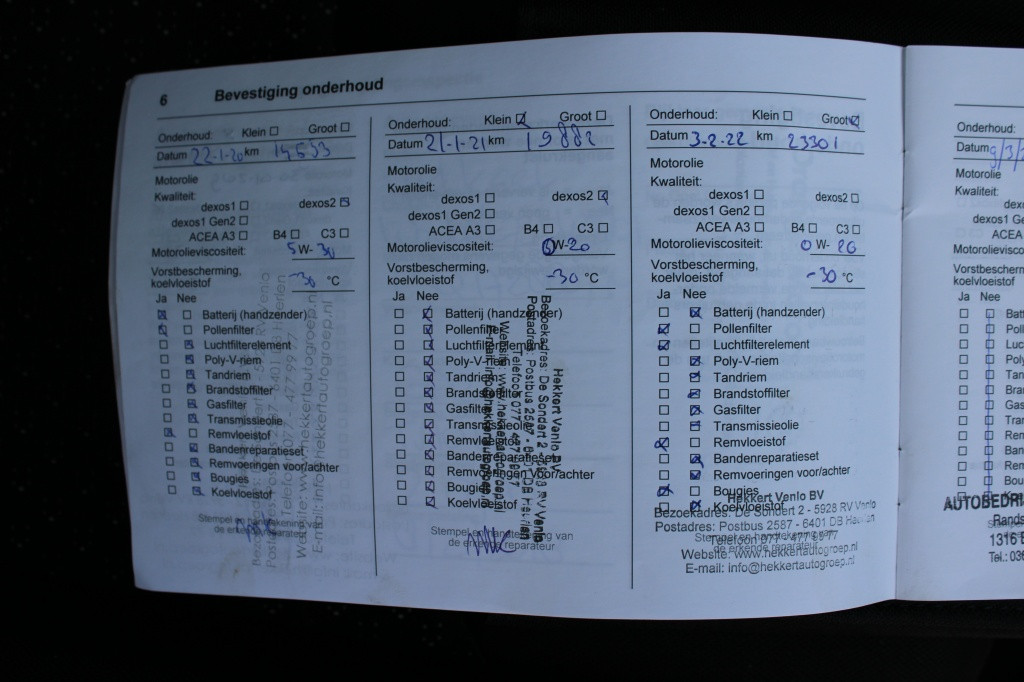 6 Bevestiging onderhoud
Onderhoud: Klein Groot
Datum 22-1-20 km
Motorolie
Kwaliteit:
dexos1 dexos2
dexos1 Gen2
ACEA A3 B4 C3
Motorolieviscositeit: 5 W- 30
Vorstbescherming,
koelvloeistof -30 °C
Ja Nee
Batterij (handzender)
Pollenfilter
Luchtfilterelement
Poly-V-riem
Tandriem
Brandstoffilter
Gasfilter
Transmissieolie
Remvloeistof
Bandenreparatieset
Remvoeringen voor/achter
Bougies
Koelvloeistof
Stempel en handtekening van
de erkende reparateur
Onderhoud: Klein Groot
Datum 21-1-21 km 19882
Motorolie
Kwaliteit:
dexos1 dexos2
dexos1 Gen2
ACEA A3 B4 C3
Motorolieviscositeit: 0W-20
Vorstbescherming,
koelvloeistof -30 °C
Ja Nee
Batterij (handzender)
Pollenfilter
Luchtfilterelement
Poly-V-riem
Tandriem
Brandstoffilter
Gasfilter
Transmissieolie
Remvloeistof
Bandenreparatieset
Remvoeringen voor/achter
Bougies
Koelvloeistof
Stempel en handtekening van
de erkende reparateur
Hekkert Venlo BV
Bezoekadres: De Sondert 2 - 5928 RV Venlo
Postadres: Postbus 2587 - 6401 DB Heerlen
Telefoon 077 - 477 99 77
Website: www.hekkertautogroep.nl
E-mail: info@hekkertautogroep.nl
Onderhoud: Klein Groot
Datum 3-2-22 km 23301
Motorolie
Kwaliteit:
dexos1 dexos2
dexos1 Gen2
ACEA A3 B4 C3
Motorolieviscositeit: 0 W- 20
Vorstbescherming,
koelvloeistof -30 °C
Ja Nee
Batterij (handzender)
Pollenfilter
Luchtfilterelement
Poly-V-riem
Tandriem
Brandstoffilter
Gasfilter
Transmissieolie
Remvloeistof
Bandenreparatieset
Remvoeringen voor/achter
Bougies
Koelvloeistof
Hekkert Venlo BV
Bezoekadres: De Sondert 2 - 5928 RV Venlo
Postadres: Postbus 2587 - 6401 DB Heerlen
Telefoon 077 - 477 99 77
Stempel en handtekening van
de erkende reparateur
Website: www.hekkertautogroep.nl
E-mail: info@hekkertautogroep.nl
Onderhoud:
Datum 9/3/
Motorolie
Kwaliteit:
Motorolieviscos
Vorstbescherm
koelvloeistof
Ja Nee
AUTOBEDRI
Rands
1316
Tel.: 03